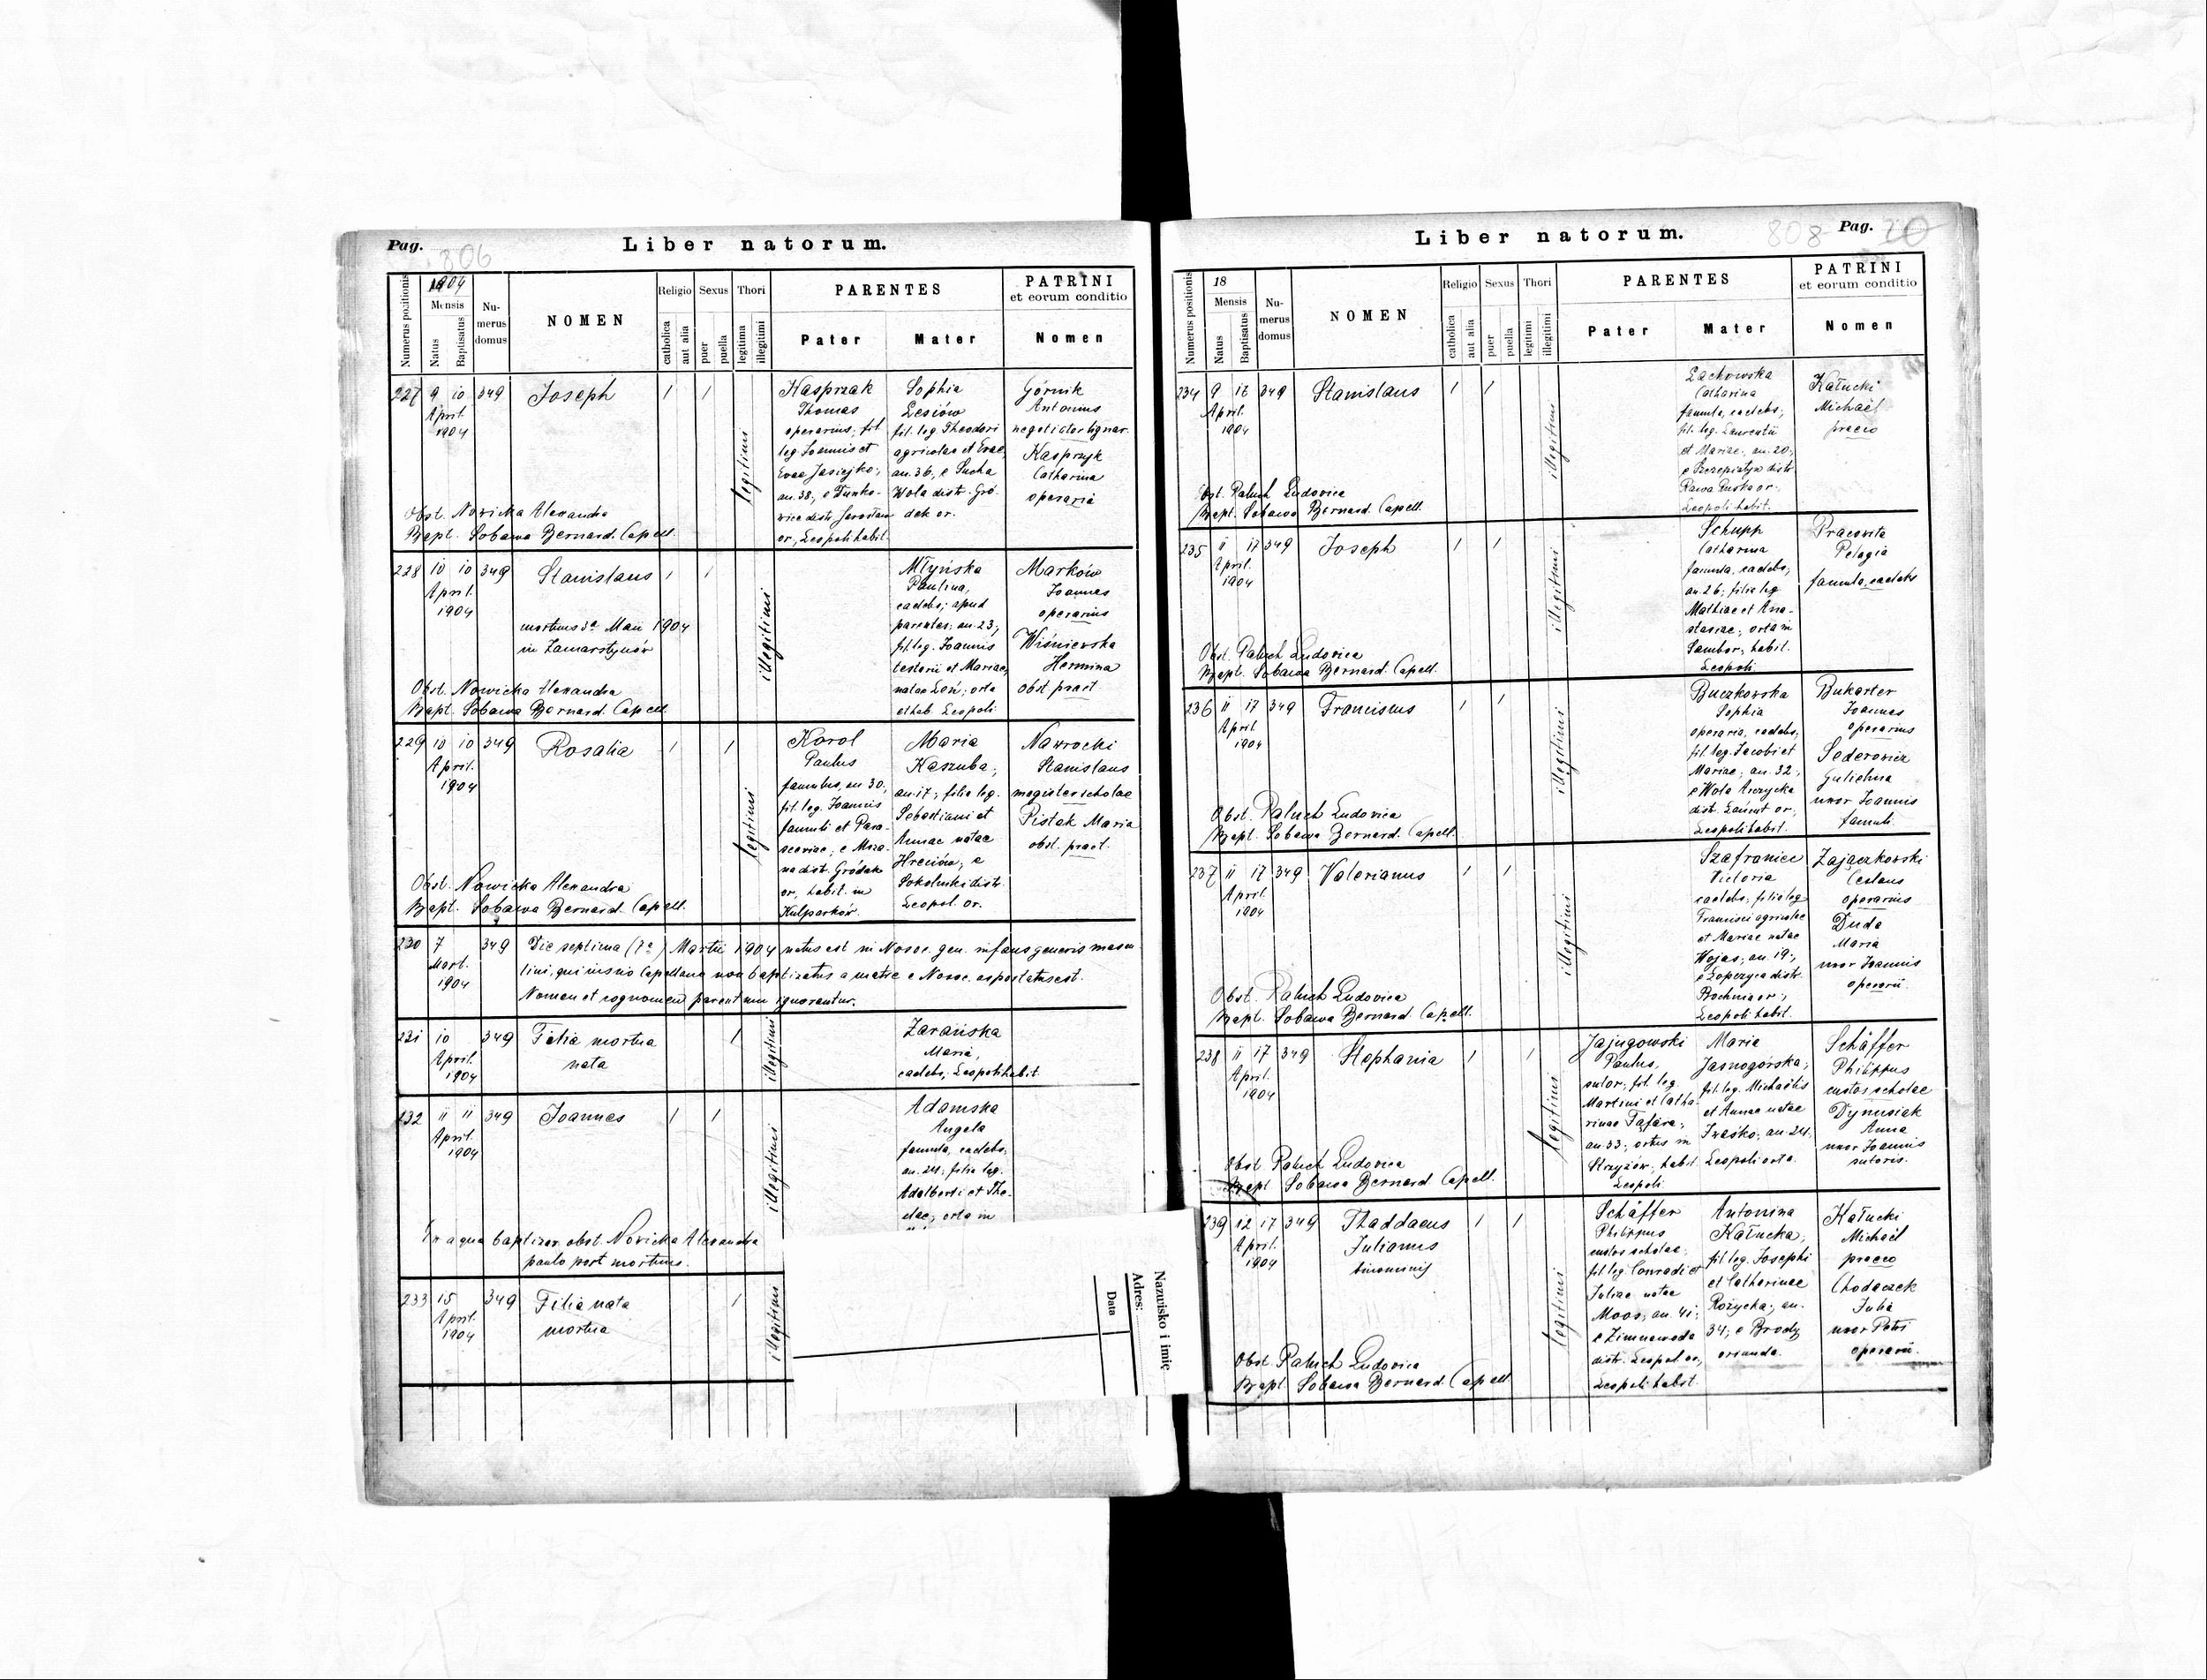 Pag.
806
Liber natorum.
Numerus positionis
1904
Mensis
Natus
Baptisatus
Numerus domus
NOMEN
Religio
catholica
aut alia
Sexus
puer
puella
Thori
legitima
illegitimi
PARENTES
Pater
Mater
PATRINI
et eorum conditio
Nomen
227 9 10 349 Joseph 1 1
April.
1904
legitimi
Kasprzak
Thomas
operarius, fil.
leg. Joannis et
Evae Jasiejko;
an. 38;
or., Leopoli habit.
Sophia
Lesiów
fil. leg. Theodori
agricolae et Evae,
an. 36, e Sucha
Wola distr. Gró-
dek or.
Górnik
Antonius
negotiator lignar.
Kasprzyk
Catharina
operaria
Obst. Nowicka Alexandra
Bapt. Sobawa Bernard. Capell.
228 10 10 349 Stanislaus 1 1
April.
1904
mortuus 3a Maii 1904
in Zamarstynów
illegitimi
Młyńska
Paulina,
caelebs; apud
parentes; an. 23;
fil. leg. Joannis
et Mariae,
natae Leń; orta
et hab. Leopoli
Marków
Joannes
operarius
Wiśniewska
Hermina
obst. pract.
Obst. Nowicka Alexandra
Bapt. Sobawa Bernard. Capell.
229 10 10 349 Rosalia 1 1
April.
1904
legitimi
Karol
Paulus
famulus, an. 30,
fil. leg. Joannis
famuli et Para-
sceviae; e
distr. Gródek
or., habit. in
Kulparków.
Maria
Kaszuba;
an. 17; filia leg.
Sebastiani et
Annae natae
Hreciów; e
Sokolniki distr.
Leopol. or.
Nawrocki
Stanislaus
magister scholae
Pistak Maria
obst. pract.
Obst. Nowicka Alexandra
Bapt. Sobawa Bernard. Capell.
230 7 349 Die septima (7a) Martii 1904 natus est in Nosoc. gen. infans generis mascu-
Mart. lini, qui inscio Capellano non baptizatus a matre e Nosoc. asportatus est.
1904 Nomen et cognomen parentum ignorantur.
231 10 349 Filia mortua 1
April. nata
1904
illegitimi
Zarańska
Maria,
caelebs, Leopoli habit.
232 11 11 349 Joannes 1 1
April.
1904
illegitimi
Adamska
Angela
famula, caelebs,
an. 24; filia leg.
Adalberti et The-
clae; orta in
Ex aqua baptizav. obst. Nowicka Alexandra
paulo post mortuus.
233 15 349 Filia nata 1
April. mortua
1904
illegitimi
Data
Adres:
Nazwisko i imię
Liber natorum.
808
Pag. 20
Numerus positionis
18
Mensis
Natus
Baptisatus
Numerus domus
NOMEN
Religio
catholica
aut alia
Sexus
puer
puella
Thori
legitimi
illegitimi
PARENTES
Pater
Mater
PATRINI
et eorum conditio
Nomen
234 9 17 349 Stanislaus 1 1
April.
1904
illegitimi
Lachowska
Catharina
famula, caelebs;
fil. leg. Laurentii
et Mariae, an. 20;
e Szczepiatyn distr.
Rawa Ruska or.,
Leopoli habit.
Kałucki
Michaël
praeco
Obst. Paluch Ludovica
Bapt. Sobawa Bernard. Capell.
235 11 17 349 Joseph 1 1
April.
1904
illegitimi
Schupp
Catharina
famula, caelebs;
an. 26; filia leg.
Mathiae et Ana-
stasiae; orta in
Sambor; habit.
Leopoli
Pracovita
Pelagia
famula, caelebs
Obst. Paluch Ludovica
Bapt. Sobawa Bernard. Capell.
236 11 17 349 Franciscus 1 1
April.
1904
illegitimi
Buczkowska
Sophia
operaria, caelebs;
fil. leg. Jacobi et
Mariae; an. 32;
e Wola
distr. Łańcut or.,
Leopoli habit.
Bukarter
Joannes
operarius
Sederowicz
Gulielma
uxor Joannis
famuli
Obst. Paluch Ludovica
Bapt. Sobawa Bernard. Capell.
237 11 17 349 Valerianus 1 1
April.
1904
illegitimi
Szafraniec
Victoria
caelebs; filia leg.
Francisci agricolae
et Mariae natae
Wojas; an. 19;
e Łapczyca distr.
Bochnia or.;
Leopoli habit.
Zajaczkowski
Ceslaus
operarius
Duda
Maria
uxor Joannis
operarii
Obst. Paluch Ludovica
Bapt. Sobawa Bernard. Capell.
238 11 17 349 Stephania 1 1
April.
1904
legitimi
Jajugowski
Paulus,
sutor; fil. leg.
Martini et Catha-
rinae Fafara;
an. 33; ortus in
Strzyżów, habit.
Leopoli
Maria
Jasnogórska;
fil. leg. Michaëlis
et Annae natae
Iwaśko; an. 24;
Leopoli orta.
Schäffer
Philippus
custos scholae
Dymusiak
Anna
uxor Joannis
sutoris.
Obst. Paluch Ludovica
Bapt. Sobawa Bernard. Capell.
239 12 17 349 Thaddaeus 1 1
April. Julianus
1904 binominis
legitimi
Schäffer
Philippus
custos scholae;
fil. leg. Conradi et
Juliae natae
Moos; an. 41;
e Zimnawoda
distr. Leopol. or.,
Leopoli habit.
Antonina
Kałucka;
fil. leg. Josephi
et Catharinae
Rożycka; an.
34; e Brody
oriunda.
Kałucki
Michaël
praeco
Chodaczek
Julia
uxor Petri
operarii.
Obst. Paluch Ludovica
Bapt. Sobawa Bernard. Capell.